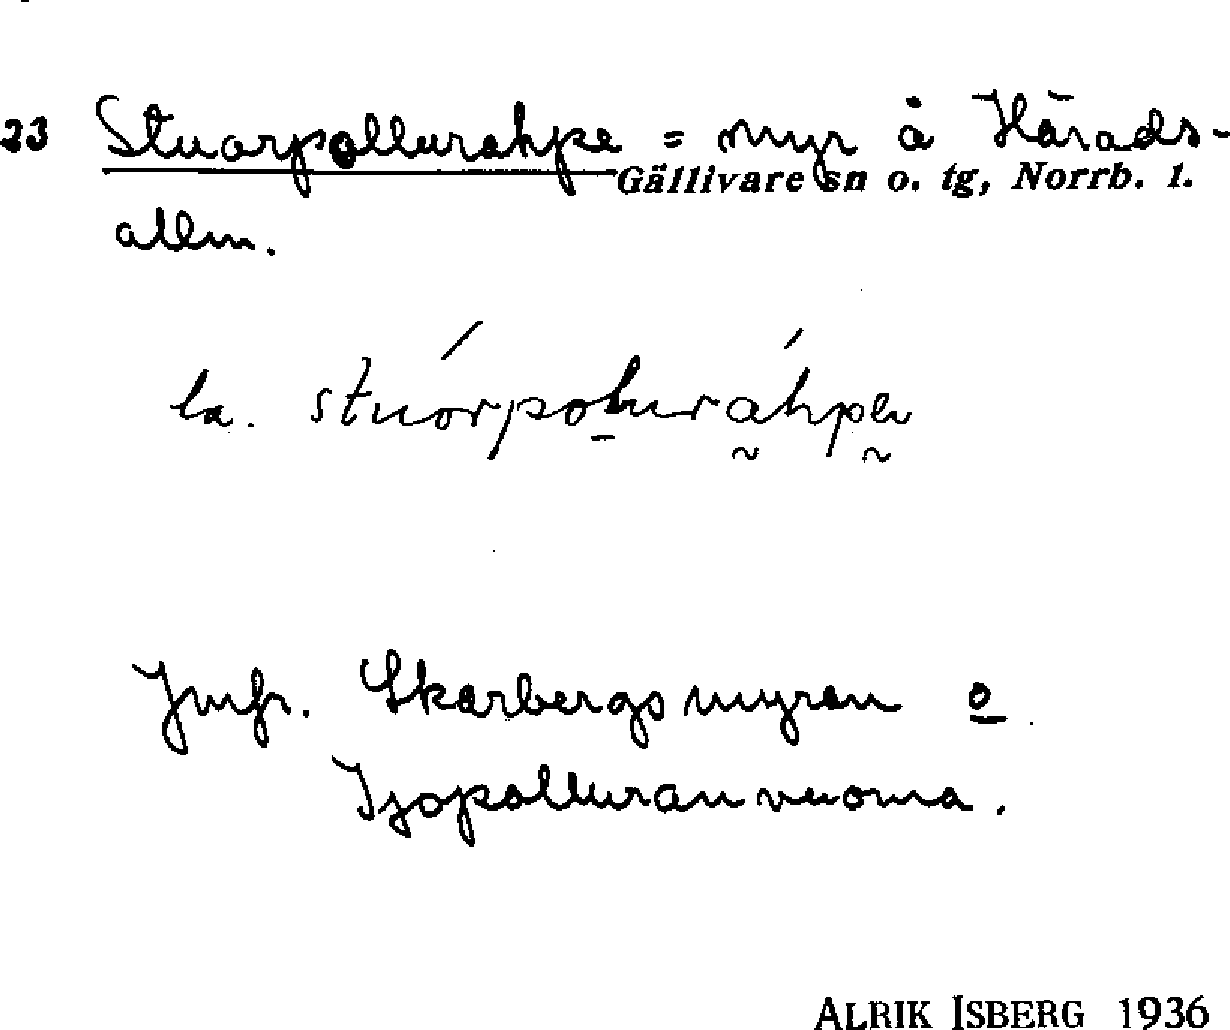 23 Stuorpollurahpe = myr å Härads-
Gällivare sn o. tg, Norrb. l.
allm.
la. stuorpolurahpe
Jmfr. Skarbergsmyren o
Isopolluranvuoma.
ALRIK ISBERG 1936